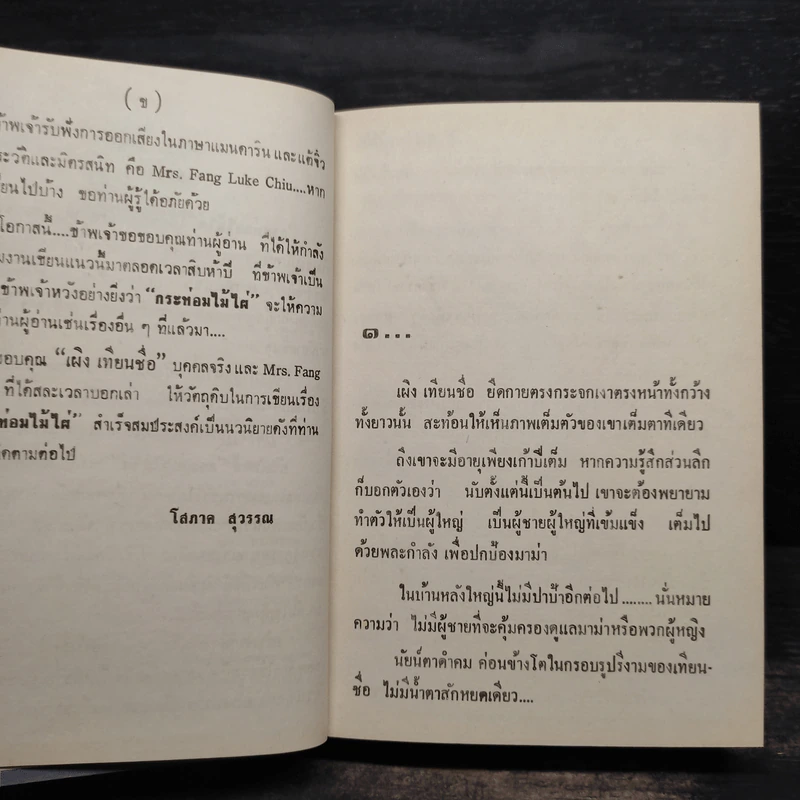 ( ข )
้าพเจ้ารับฟังการออกเสียงในภาษาแมนดาริน และแต้จิ๋ว
ะวัติและมิตรสนิท คือ Mrs. Fang Luke Chiu....หาก
ยนไปบ้าง ขอท่านผู้รู้ได้อภัยด้วย
โอกาสนี้....ข้าพเจ้าขอขอบคุณท่านผู้อ่าน ที่ได้ให้กำลัง
งานเขียนแนวนี้มาตลอดเวลาสิบห้าปี ที่ข้าพเจ้าเป็น
ข้าพเจ้าหวังอย่างยิ่งว่า “กระท่อมไม้ไผ่” จะให้ความ
่านผู้อ่านเช่นเรื่องอื่น ๆ ที่แล้วมา....
ขอบคุณ “เผิง เทียนชื่อ” บุคคลจริง และ Mrs. Fang
ที่ได้สละเวลาบอกเล่า ให้วัตถุดิบในการเขียนเรื่อง
ท่อมไม้ไผ่” สำเร็จสมประสงค์เป็นนวนิยายดังที่ท่าน
ิดตามต่อไป
โสภาค สุวรรณ
๑...
เผิง เทียนชื่อ ยืดกายตรงกระจกเงาตรงหน้าทั้งกว้าง
ทั้งยาวนั้น สะท้อนให้เห็นภาพเต็มตัวของเขาเต็มตาทีเดียว
ถึงเขาจะมีอายุเพียงเก้าปีเต็ม หากความรู้สึกส่วนลึก
ก็บอกตัวเองว่า นับตั้งแต่นี้เป็นต้นไป เขาจะต้องพยายาม
ทำตัวให้เป็นผู้ใหญ่ เป็นผู้ชายผู้ใหญ่ที่เข้มแข็ง เต็มไป
ด้วยพละกำลัง เพื่อปกป้องมาม่า
ในบ้านหลังใหญ่นี้ไม่มีปาป้าอีกต่อไป........นั่นหมาย
ความว่า ไม่มีผู้ชายที่จะคุ้มครองดูแลมาม่าหรือพวกผู้หญิง
นัยน์ตาดำคม ค่อนข้างโตในกรอบรูปรีงามของเทียน-
ชื่อ ไม่มีน้ำตาสักหยดเดียว....